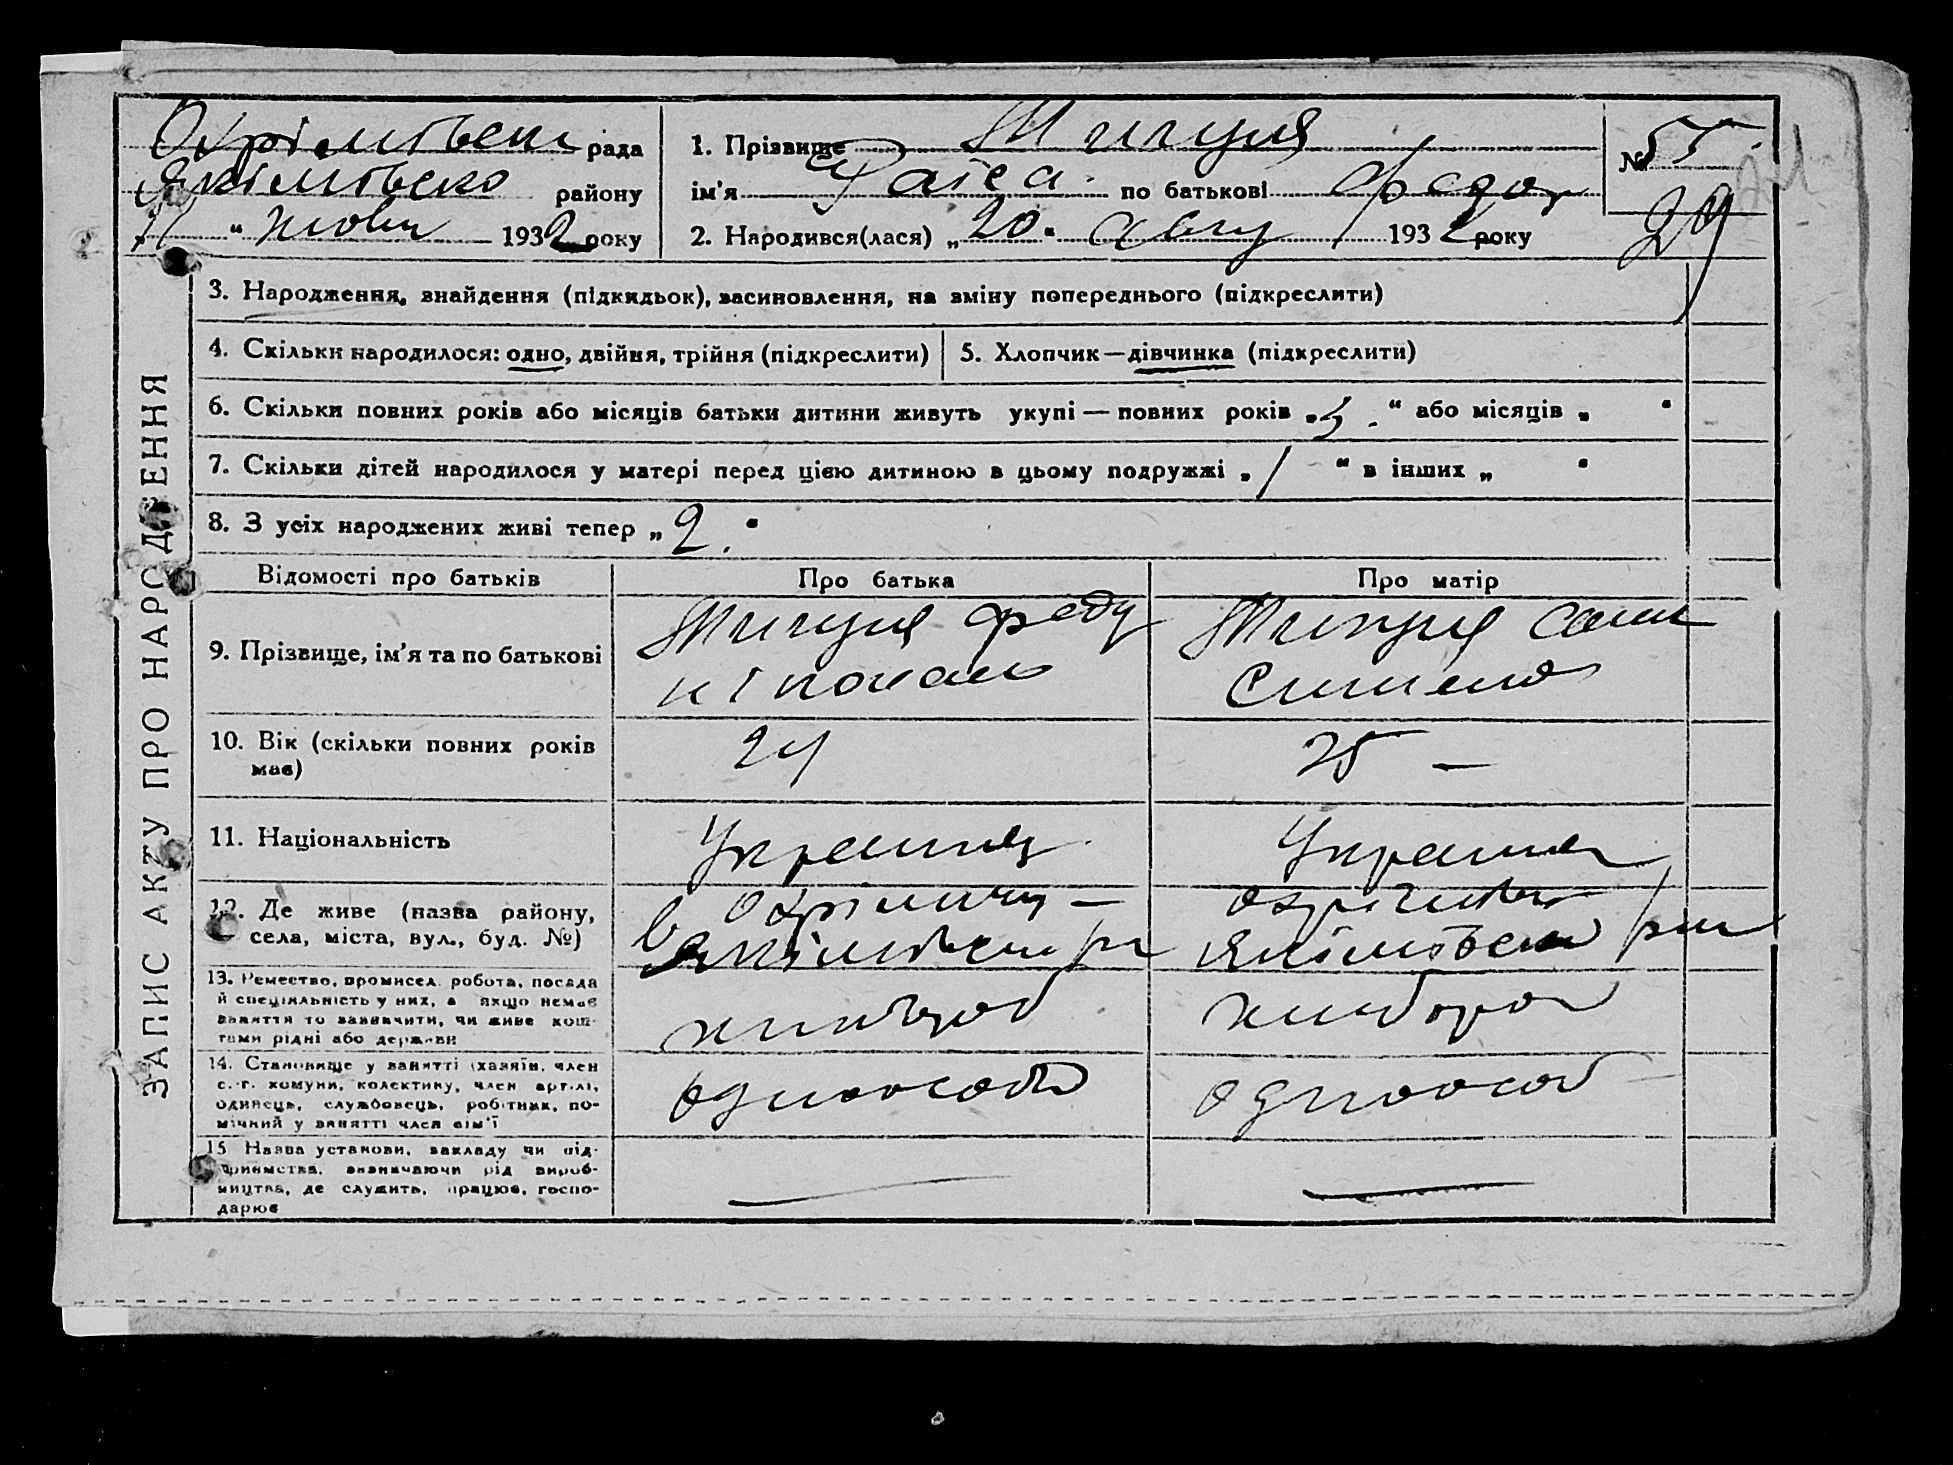 Охрімівськ рада
Якімівсько району
11 " жовтн 1932 року
1. Прізвище Жигуля
ім'я Раїса по батькові Федор
2. Народився(лася) „20" Авгу 1932 року
№ 55.
29
ЗАПИС АКТУ ПРО НАРОДЖЕННЯ
3. Народження, знайдення (підкидьок), засиновлення, на зміну попереднього (підкреслити)
4. Скільки народилося: одно, двійня, трійня (підкреслити)
5. Хлопчик — дівчинка (підкреслити)
6. Скільки повних років або місяців батьки дитини живуть укупі — повних років „ " або місяців „ "
7. Скільки дітей народилося у матері перед цією дитиною в цьому подружжі „ 1 " в інших „ "
8. З усіх народжених живі тепер „ 2. "
Відомості про батьків Про батька Про матір
9. Прізвище, ім'я та по батькові
Жигуля Феду
Жигуля
10. Вік (скільки повних років має)
24
25 —
11. Національність
Украинц
Украин
12. Де живе (назва району, села, міста, вул., буд. №)
Якімівськ р
Якімівськ
13. Ремество, промисел, робота, посада
й спеціяльність у них, а якщо немає
заняття то зазначити, чи живе кош-
тами рідні або держави
хлибороб
хлибороб
14. Становище у занятті (хазяїн, член
с.-г. комуни, колективу, член артілі,
одинець, службовець, робітник, по-
мічний у занятті член сім'ї
одноособ
одноособ
15 Назва установи, закладу чи під-
приємства, визначаючи рід вироб-
ництва, де служить, працює, госпо-
дарює